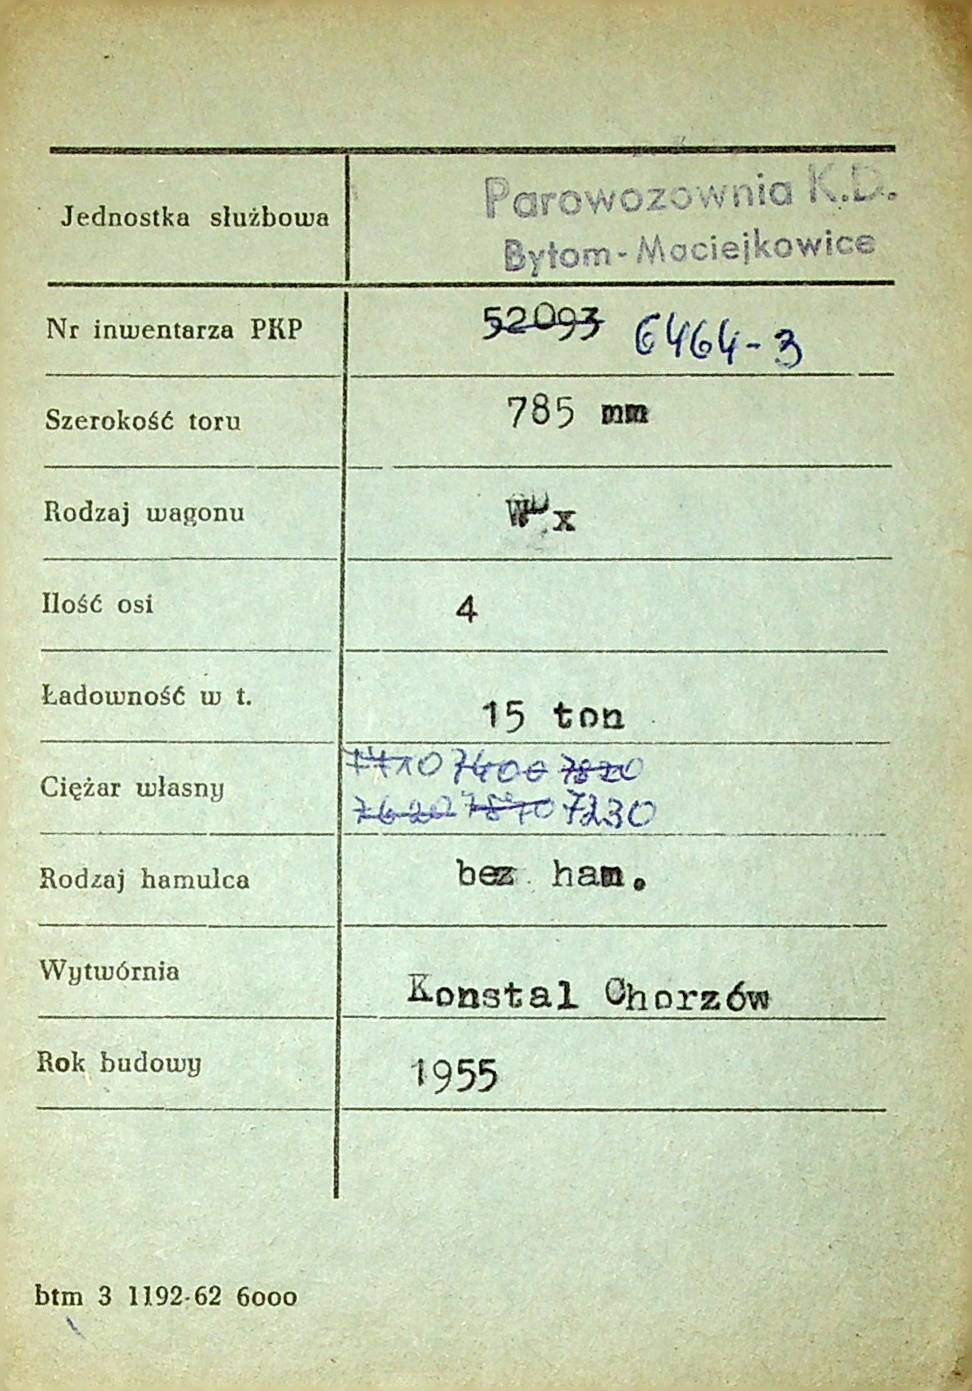 Jednostka służbowa Parowozownia K.D.
Bytom-Maciejkowice
Nr inwentarza PKP 52093 6464-3
Szerokość toru 785 mm
Rodzaj wagonu W x
Ilość osi 4
Ładowność w t. 15 ton
Ciężar własny 7400 7820
7620 7870 7230
Rodzaj hamulca bez ham.
Wytwórnia Konstal Chorzów
Rok budowy 1955
btm 3 1192-62 6000